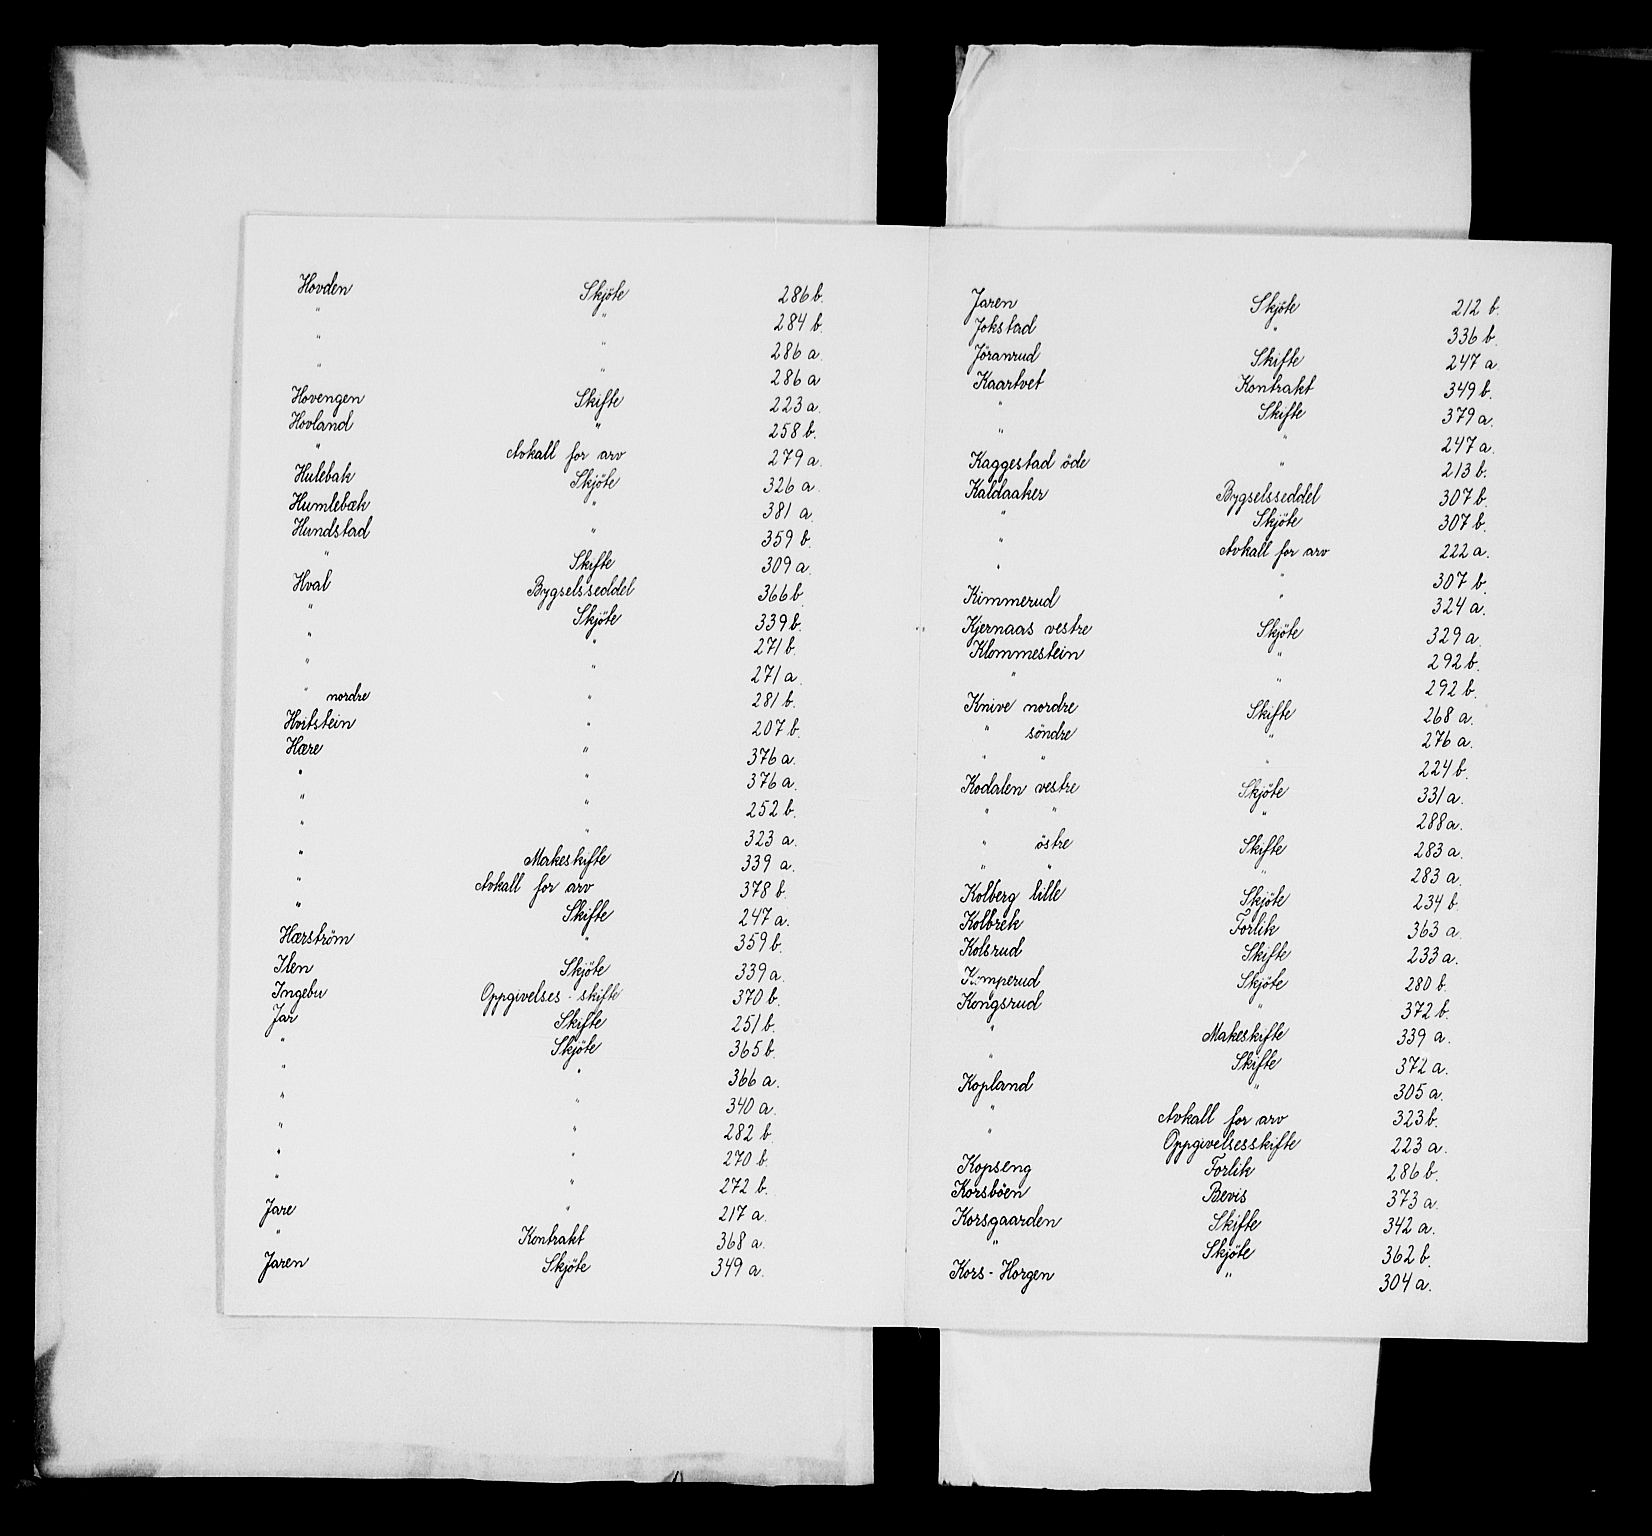 Hovden Skjöte 286 b.
" " 284 b.
" " 286 a.
" " 286 a
Hovengen Skifte 223 a.
Hovland " 258 b.
" Avkall for arv 279 a.
Hulebak Skjöte 326 a.
Humlebæk " 381 a.
Hundstad " 359 b.
" Skifte 309 a.
Hval Bygselsseddel 366 b.
" Skjöte 339 b.
" " 271 b.
" " 271 a.
" nordre " 281 b.
Hvitstein " 207 b.
Hære " 376 a.
" " 376 a.
" " 252 b.
" " 323 a.
" Makeskifte 339 a.
" Avkall for arv 378 b.
" Skifte 247 a.
Hærström " 359 b.
Ilen Skjöte 339 a.
Ingebu Oppgivelses-skifte 370 b.
Jar Skifte 251 b.
" Skjöte 365 b.
" " 366 a.
" " 340 a.
" " 282 b.
" " 270 b.
" " 272 b.
Jare " 217 a.
" Kontrakt 368 a.
Jaren Skjöte 349 a.
Jaren Skjöte 212 b.
Jokstad " 336 b.
Jöranrud Skifte 247 a.
Kaartvet Kontrakt 349 b.
" Skifte 379 a.
" " 247 a.
Kaggestad öde " 213 b.
Kaldaaker Bygselsseddel 307 b.
" Skjöte 307 b.
" Avkall for arv 222 a.
" " 307 b.
Kimmerud " 324 a.
Kjernaas vestre Skjöte 329 a.
Klommestein " 292 b.
" " 292 b.
Knive nordre Skifte 268 a.
" söndre " 276 a.
" " " 224 b.
Kodalen vestre Skjöte 331 a.
" " " 288 a.
" östre Skifte 283 a.
" " " 283 a.
Kolberg lille Skjöte 234 b.
Kolbrek Forlik 363 a.
Kolsrud Skifte 233 a.
Komperud Skjöte 280 b.
Kongsrud " 372 b.
" Makeskifte 339 a.
" Skifte 372 a.
Kopland " 305 a.
" Avkall for arv 323 b.
" Oppgivelsesskifte 223 a.
Kopseng Forlik 286 b.
Korsböen Bevis 373 a.
Korsgaarden Skifte 342 a.
" Skjöte 362 b.
Kors-Horgen " 304 a.